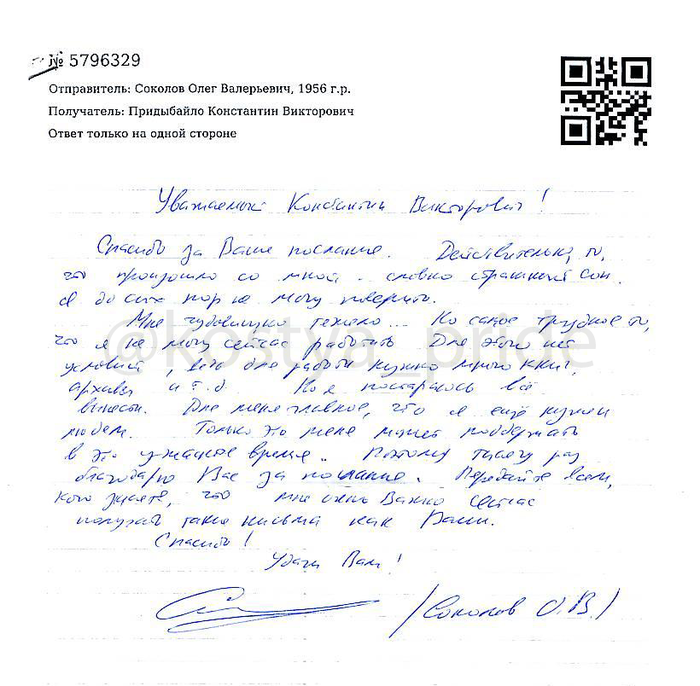 № 5796329
Отправитель: Соколов Олег Валерьевич, 1956 г.р.
Получатель: Придыбайло Константин Викторович
Ответ только на одной стороне
Уважаемый Константин Викторович!
Спасибо за Ваше послание. Действительно, то,
что произошло со мной - словно страшный сон.
Я до сих пор не могу поверить.
Мне чудовищно тяжело... Но самое трудное то,
что я не могу сейчас работать Для этого нет
условий, ведь для работы нужно много книг,
архивы и т.д. Но я постараюсь всё
вынести. Для меня главное, что я ещё нужен
людям. Только это меня может поддержать
в это ужасное время. Поэтому тысячу раз
благодарю Вас за послание. Передайте всем,
кого знаете, что мне очень важно сейчас
получать такие письма как Ваши.
Спасибо!
Удачи Вам!
/Соколов О.В./
@kostya_pride